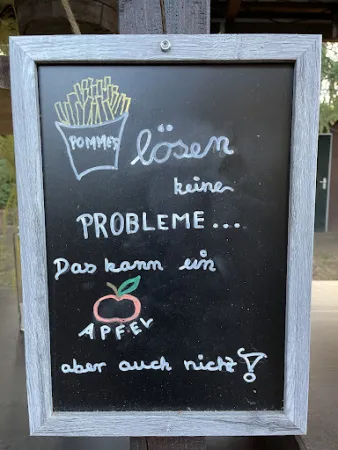 POMMES
lösen
keine
PROBLEME...
Das kann ein
APFEL
aber auch nicht!